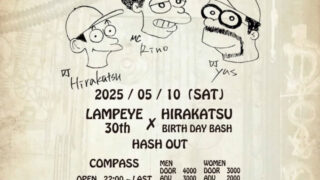 DJ Hirakatsu
MC Rino
DJ Yas
2025 / 05 / 10 (SAT)
LAMPEYE 30th × HIRAKATSU BIRTH DAY BASH
HASH OUT
COMPASS
OPEN 22:00~LAST
MEN
DOOR 4000
ADV 3000
WOMEN
DOOR 3000
ADV 2000